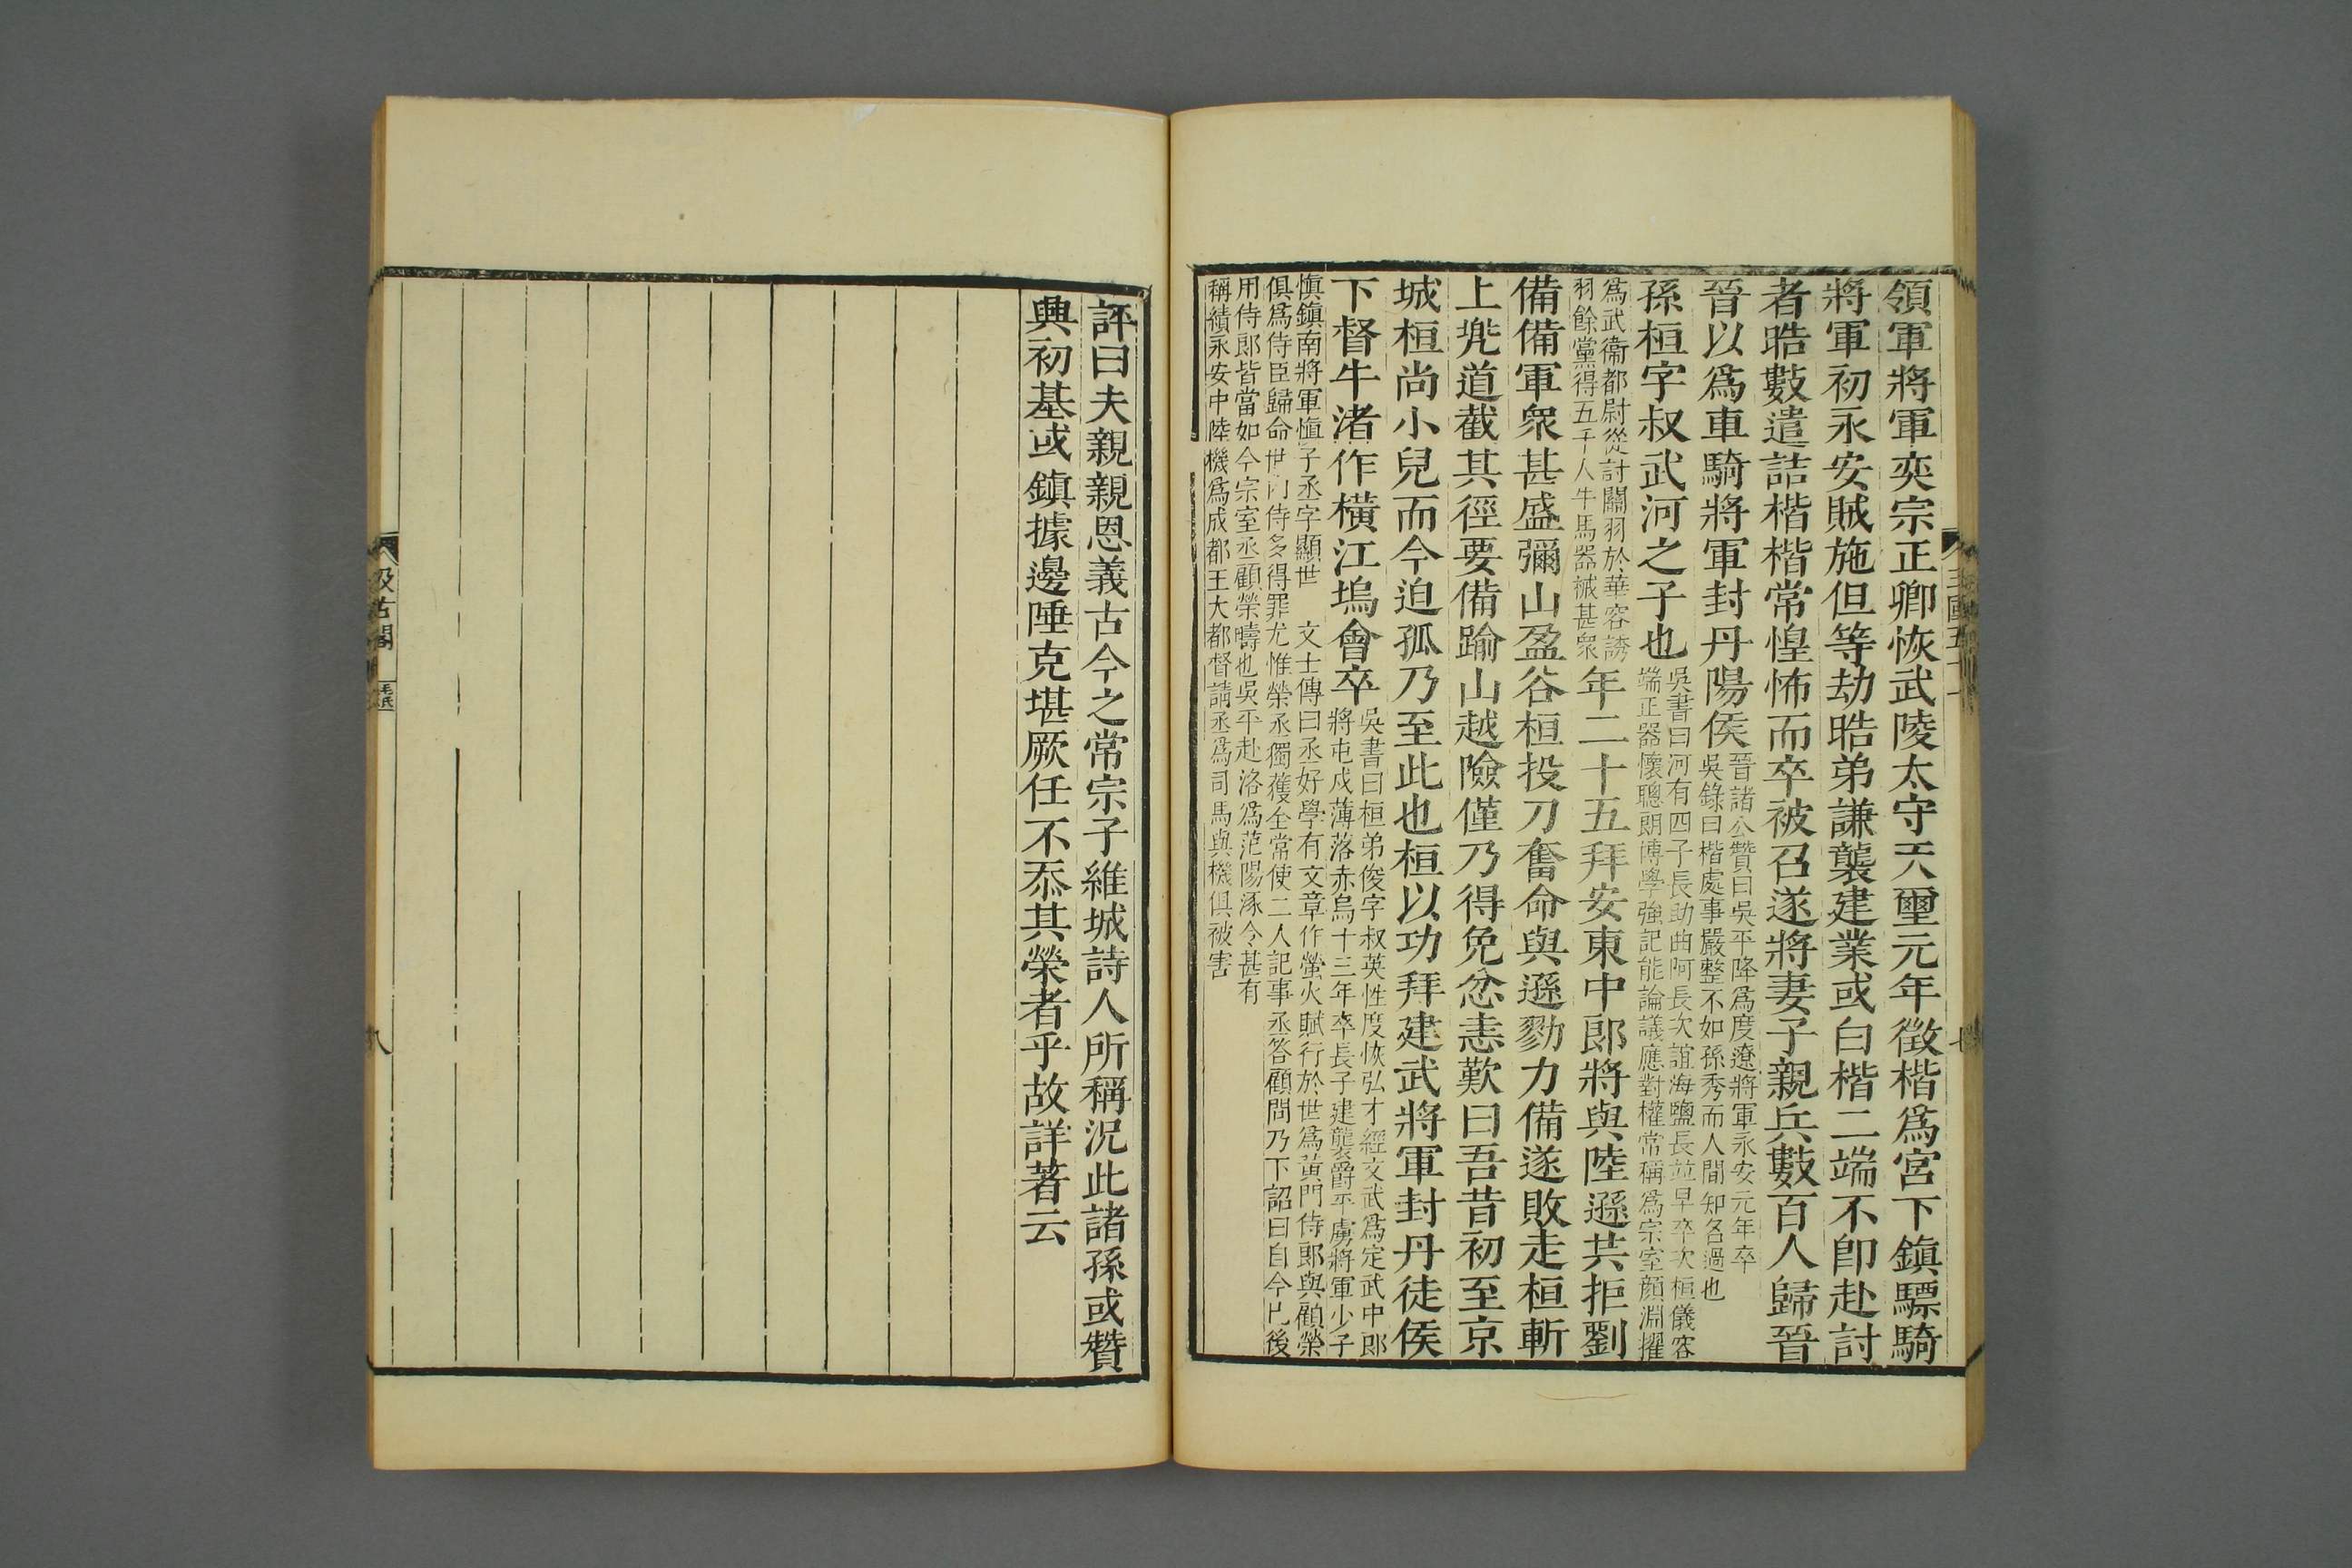 領軍將軍奕宗正卿恢武陵太守天璽元年徵楷爲宮下鎮驃騎
將軍初永安賊施但等劫晧弟謙襲建業或白楷二端不卽赴討
者晧數遣詰楷楷常惶怖而卒被召遂將妻子親兵數百人歸晉
晉以爲車騎將軍封丹陽侯
晉諸公贊曰吳平降爲度遼將軍永安元年卒
吳錄曰楷處事嚴整不如孫秀而人間知名過也
孫桓字叔武河之子也
吳書曰河有四子長助曲阿長次誼海鹽長並早卒次桓儀容
端正器懷聰朗博學強記能論議應對權常稱爲宗室顏淵擢
爲武衞都尉從討關羽於華容誘
羽餘黨得五千人牛馬器械甚衆
年二十五拜安東中郎將與陸遜共拒劉
備備軍衆甚盛彌山盈谷桓投刀奮命與遜勠力備遂敗走桓斬
上兠道截其徑要備踰山越險僅乃得免忿恚歎曰吾昔初至京
城桓尚小兒而今迫孤乃至此也桓以功拜建武將軍封丹徒侯
下督牛渚作橫江塢會卒
吳書曰桓弟俊字叔英性度恢弘才經文武爲定武中郎
將屯戍薄落赤烏十三年卒長子建襲爵平虜將軍少子
愼鎮南將軍愼子丞字顯世 文士傳曰丞好學有文章作螢火賦行於世爲黃門侍郎與顧榮
俱爲侍臣歸命世內侍多得罪尤惟榮丞獨獲全常使二人記事丞答顧問乃下詔曰自今已後
用侍郎皆當如今宗室丞顧榮疇也吳平赴洛爲范陽涿令甚有
稱績永安中陸機爲成都王大都督請丞爲司馬與機俱被害
三國五十一
七
評曰夫親親恩義古今之常宗子維城詩人所稱況此諸孫或贊
典初基或鎮據邊陲克堪厥任不忝其榮者乎故詳著云
汲古閣
毛氏
八